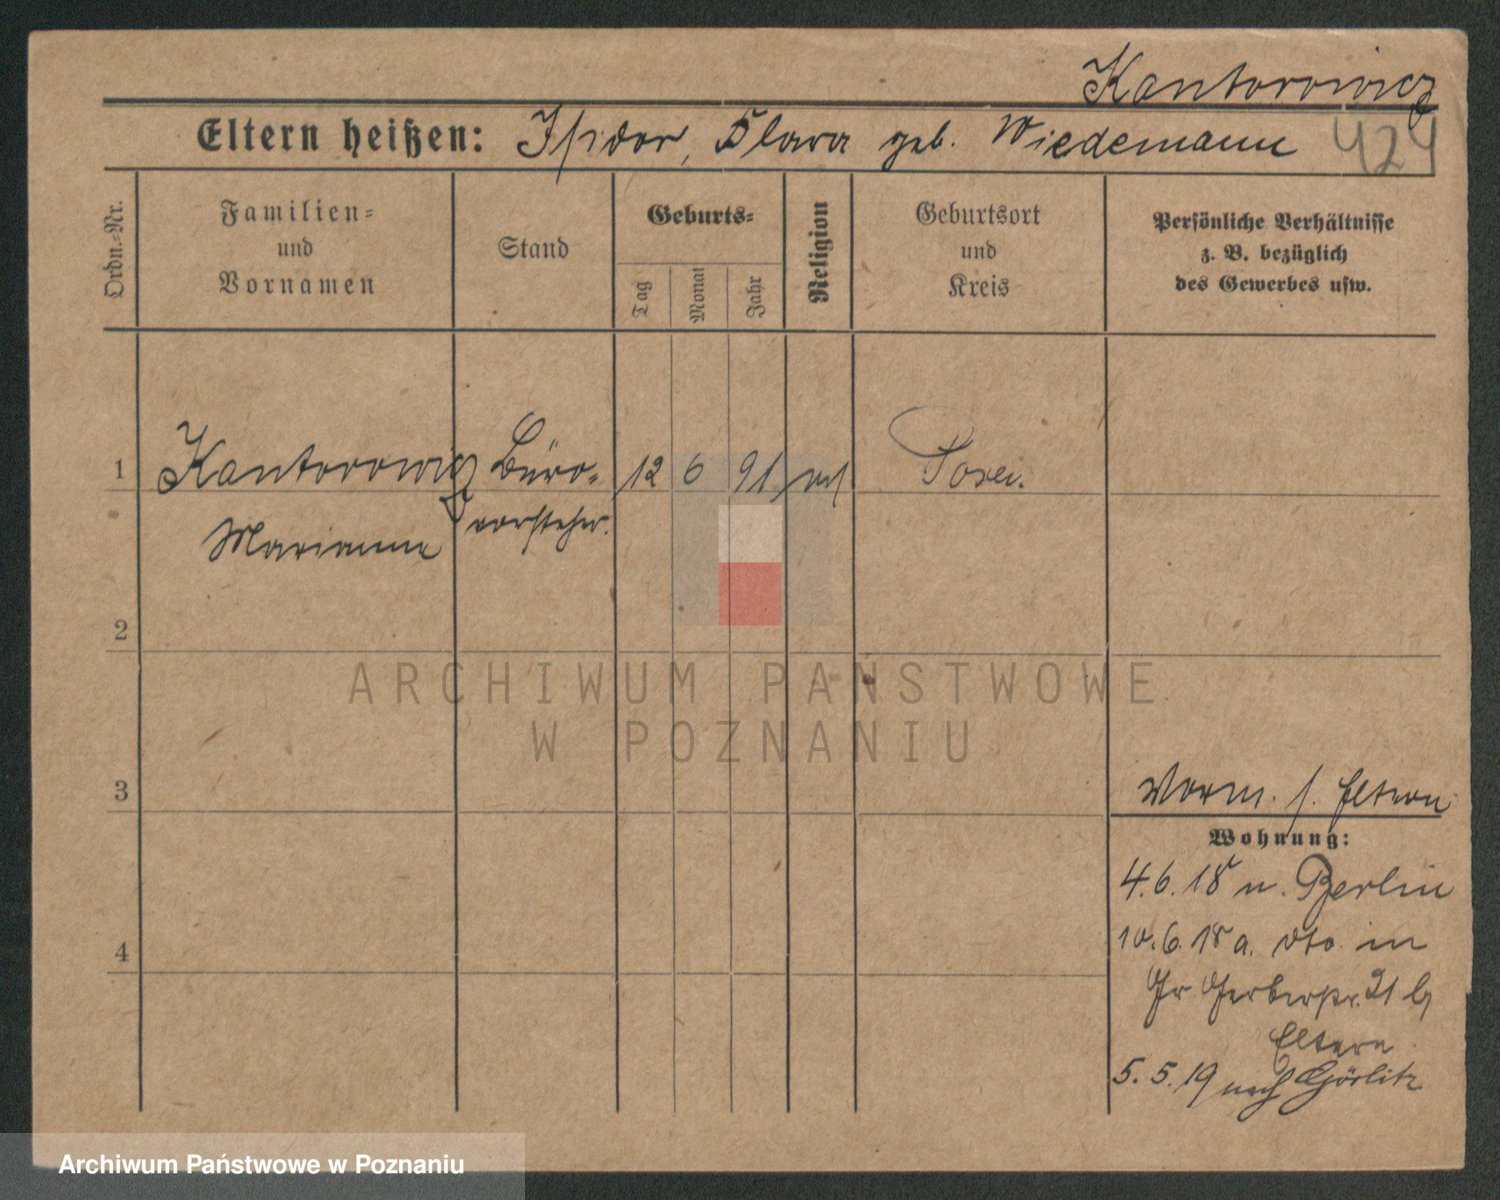 Kantorowicz
Eltern heißen: Isidor, Klara geb. Wiedemann 424
Ordn.-Nr.
Familien-
und
Vornamen
Stand
Geburts-
Tag
Monat
Jahr
Religion
Geburtsort
und
Kreis
Persönliche Verhältnisse
z. B. bezüglich
des Gewerbes usw.
1 Kantorowicz Büro- 12 6 91 Posen.
Marianne vorsteher.
2
ARCHIWUM PAŃSTWOWE
W POZNANIU
3
Vorm. s. Eltern
Wohnung:
4.6.18 n. Berlin
10.6.18 a. dto in
4
Gr Gerberstr. 21 b/
Eltern
5. 5. 19 nach Görlitz
Archiwum Państwowe w Poznaniu